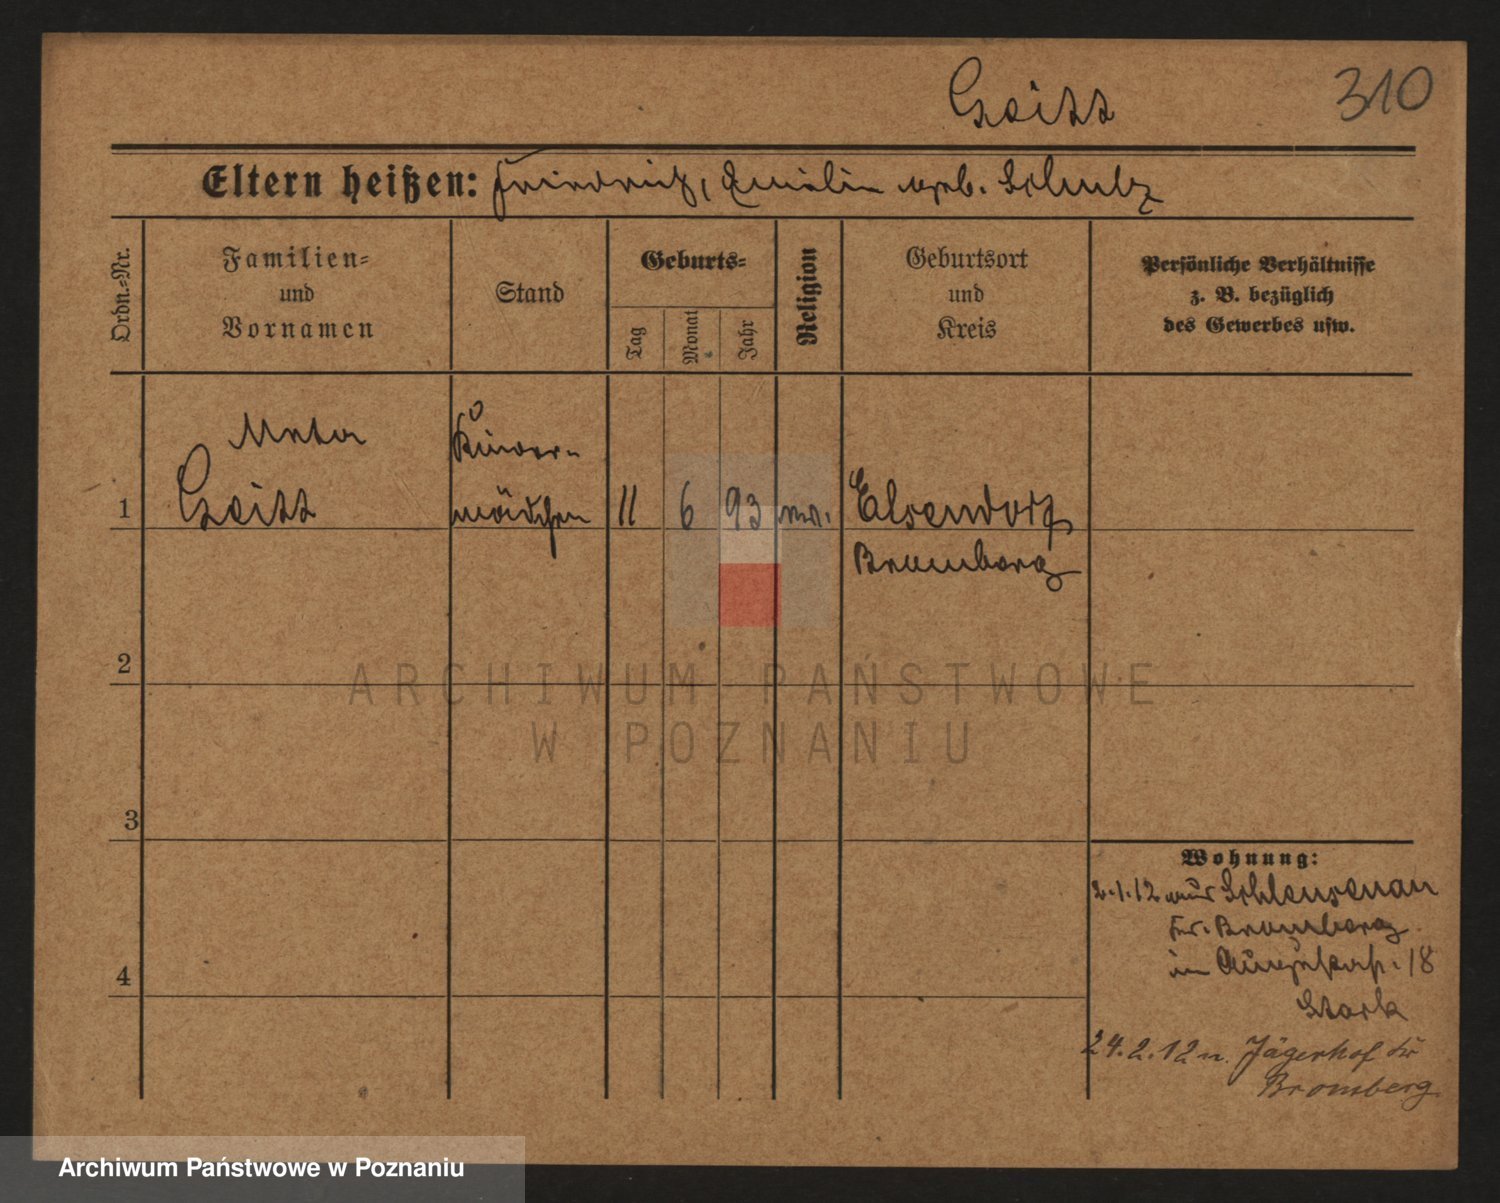 Geiss
310
Eltern heißen: Friedrich, Emilie geb. Schulz
Ordn.-Nr.
Familien-
und
Vornamen
Stand
Geburts-
Tag
Monat
Jahr
Religion
Geburtsort
und
Kreis
Persönliche Verhältnisse
z. B. bezüglich
des Gewerbes usw.
Meta
Geiss
Kinder-
mädchen
1
11
6
93
ev.
Elsendorf
Bromberg
2
ARCHIWUM PAŃSTWOWE
W POZNANIU
3
4
Wohnung:
2.1.12 aus Schleusenau
Kr. Bromberg
in 18
Stark
24.2.12 n. Jägerhof Kr
Bromberg
Archiwum Państwowe w Poznaniu